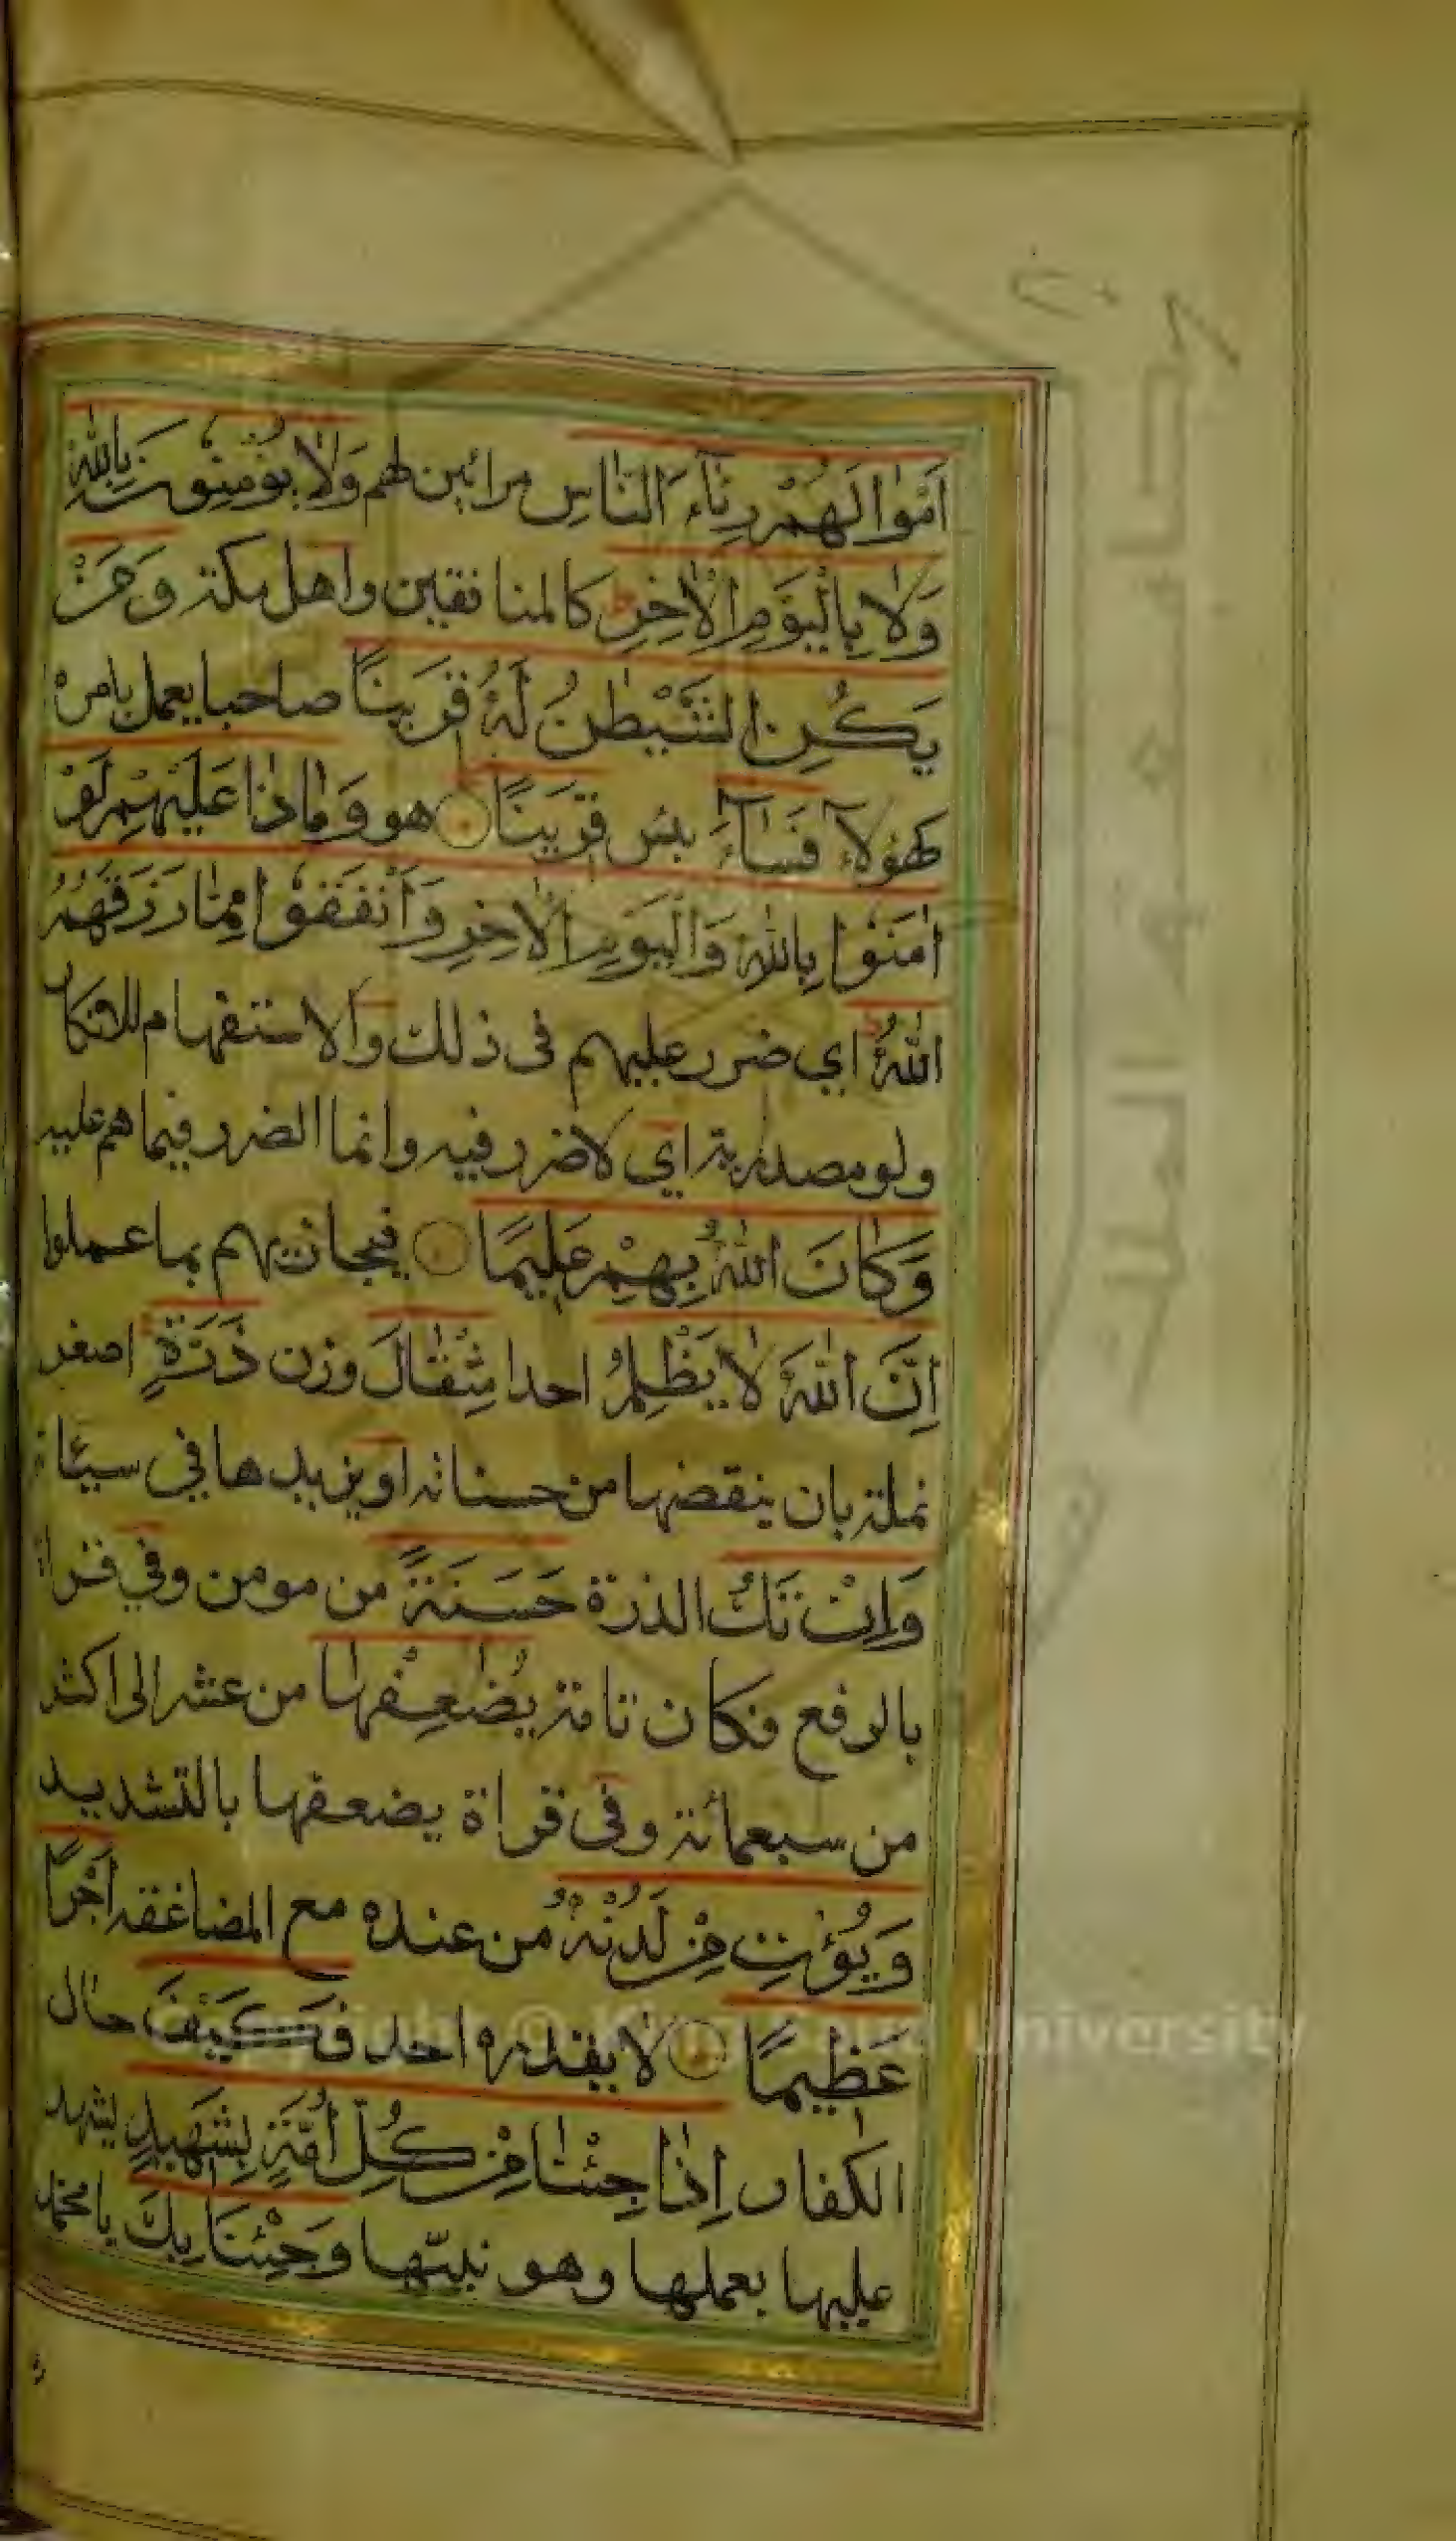 اَمْوٰالَهُمْ رِئَآءَ النّٰاسِ مرائين لهم وَلٰا يُؤْمِنُونَ بِاللّٰهِ
وَلٰا بِالْيَوْمِ الْاٰخِرِ ط كالمنافقين واهل مكة وَمَنْ
يَكُنِ الشَّيْطٰنُ لَهُ قَرِينًا صاحبا يعمل بامره
كهؤلاء فَسٰآءَ بئس قَرِينًا هو وَمٰاذٰا عَلَيْهِمْ لَوْ
اٰمَنُوا بِاللّٰهِ وَالْيَوْمِ الْاٰخِرِ وَاَنْفَقُوا مِمّٰا رَزَقَهُمُ
اللّٰهُ ط اي ضرر عليهم في ذلك والاستفهام للانكار
ولو مصدرية اي لا ضرر فيه وانما الضرر فيما هم عليه
وَكٰانَ اللّٰهُ بِهِمْ عَلِيمًا فيجازيهم بما عملوا
اِنَّ اللّٰهَ لٰا يَظْلِمُ احدا مِثْقٰالَ وزن ذَرَّةٍ اصغر
نملة بان ينقضها من حسناته او يزيدها في سيئاته
وَاِنْ تَكُ الذرة حَسَنَةً من مومن وفي قراة
بالرفع فكان تامة يُضٰعِفْهٰا من عشر الى اكثر
من سبعمائة وفي قراة يضعفها بالتشديد
وَيُؤْتِ مِنْ لَدُنْهُ من عنده مع المضاعفة اَجْرًا
عَظِيمًا لا يقدره احد فَكَيْفَ حال
الكفار اِذٰا جِئْنٰا مِنْ كُلِّ اُمَّةٍ بِشَهِيدٍ يشهد
عليها بعملها وهو نبيّها وَجِئْنَا بِكَ يا محمّد
Copyright © King Saud University
جامعة الملك سعود